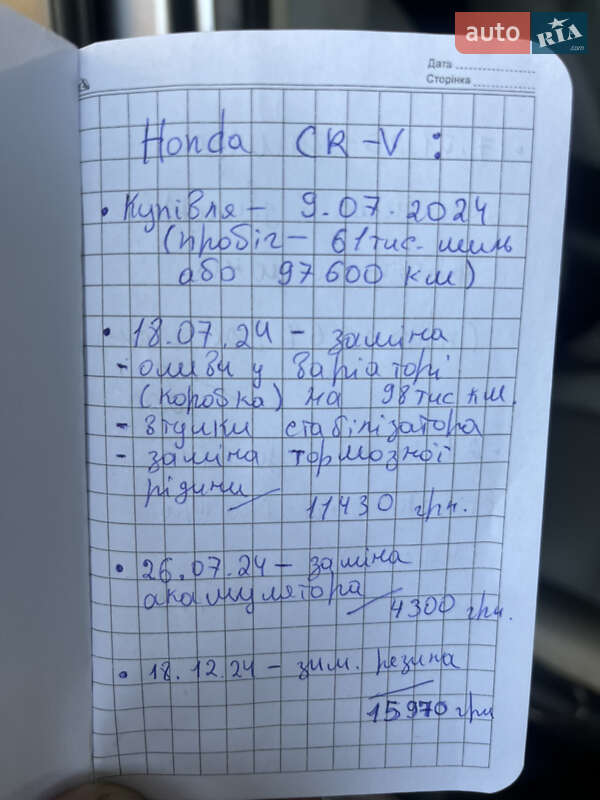 auto RIA .com
Дата
Сторінка
Honda CR-V :
• Купівля - 9.07.2024
(пробіг - 61 тис. миль
або 97600 км)
• 18.07.24 - заміна
- оливи у варіаторі
(коробка) на 98 тис км.
- втулки стабілізатора
- заміна тормозної
рідини
11430 грн.
• 26.07.24 - заміна
акамулятора
4300 грн.
• 18.12.24 - зим. резина
15970 грн